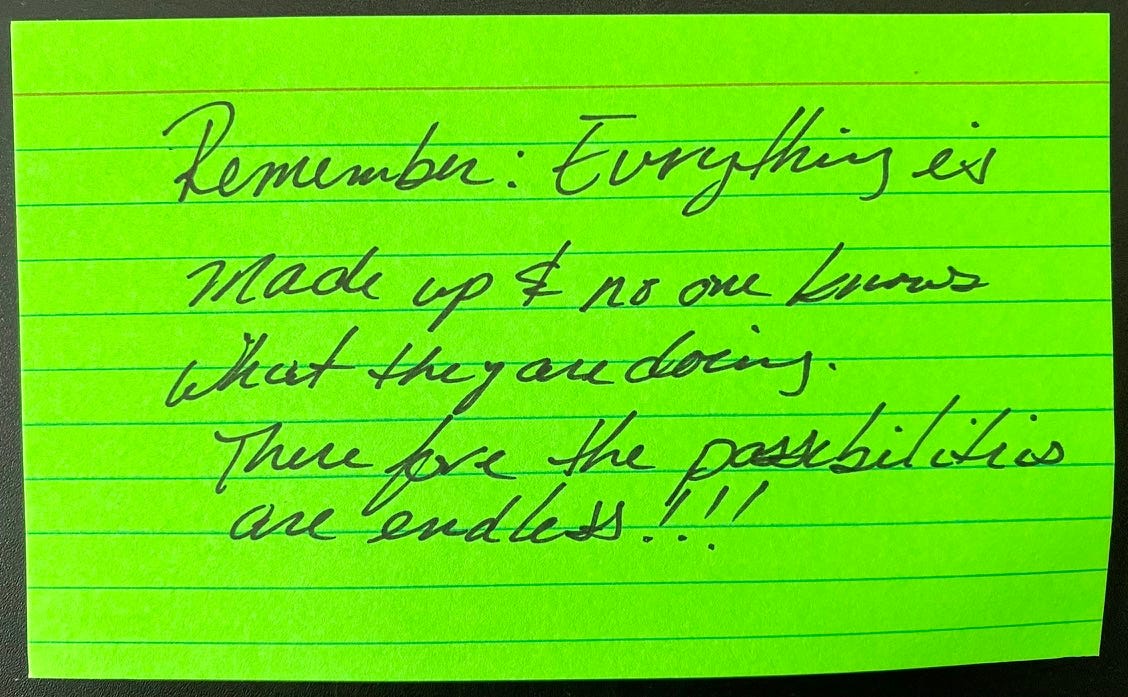 Remember: Everything is
made up & no one knows
what they are doing.
There fore the possibilities
are endless!!!